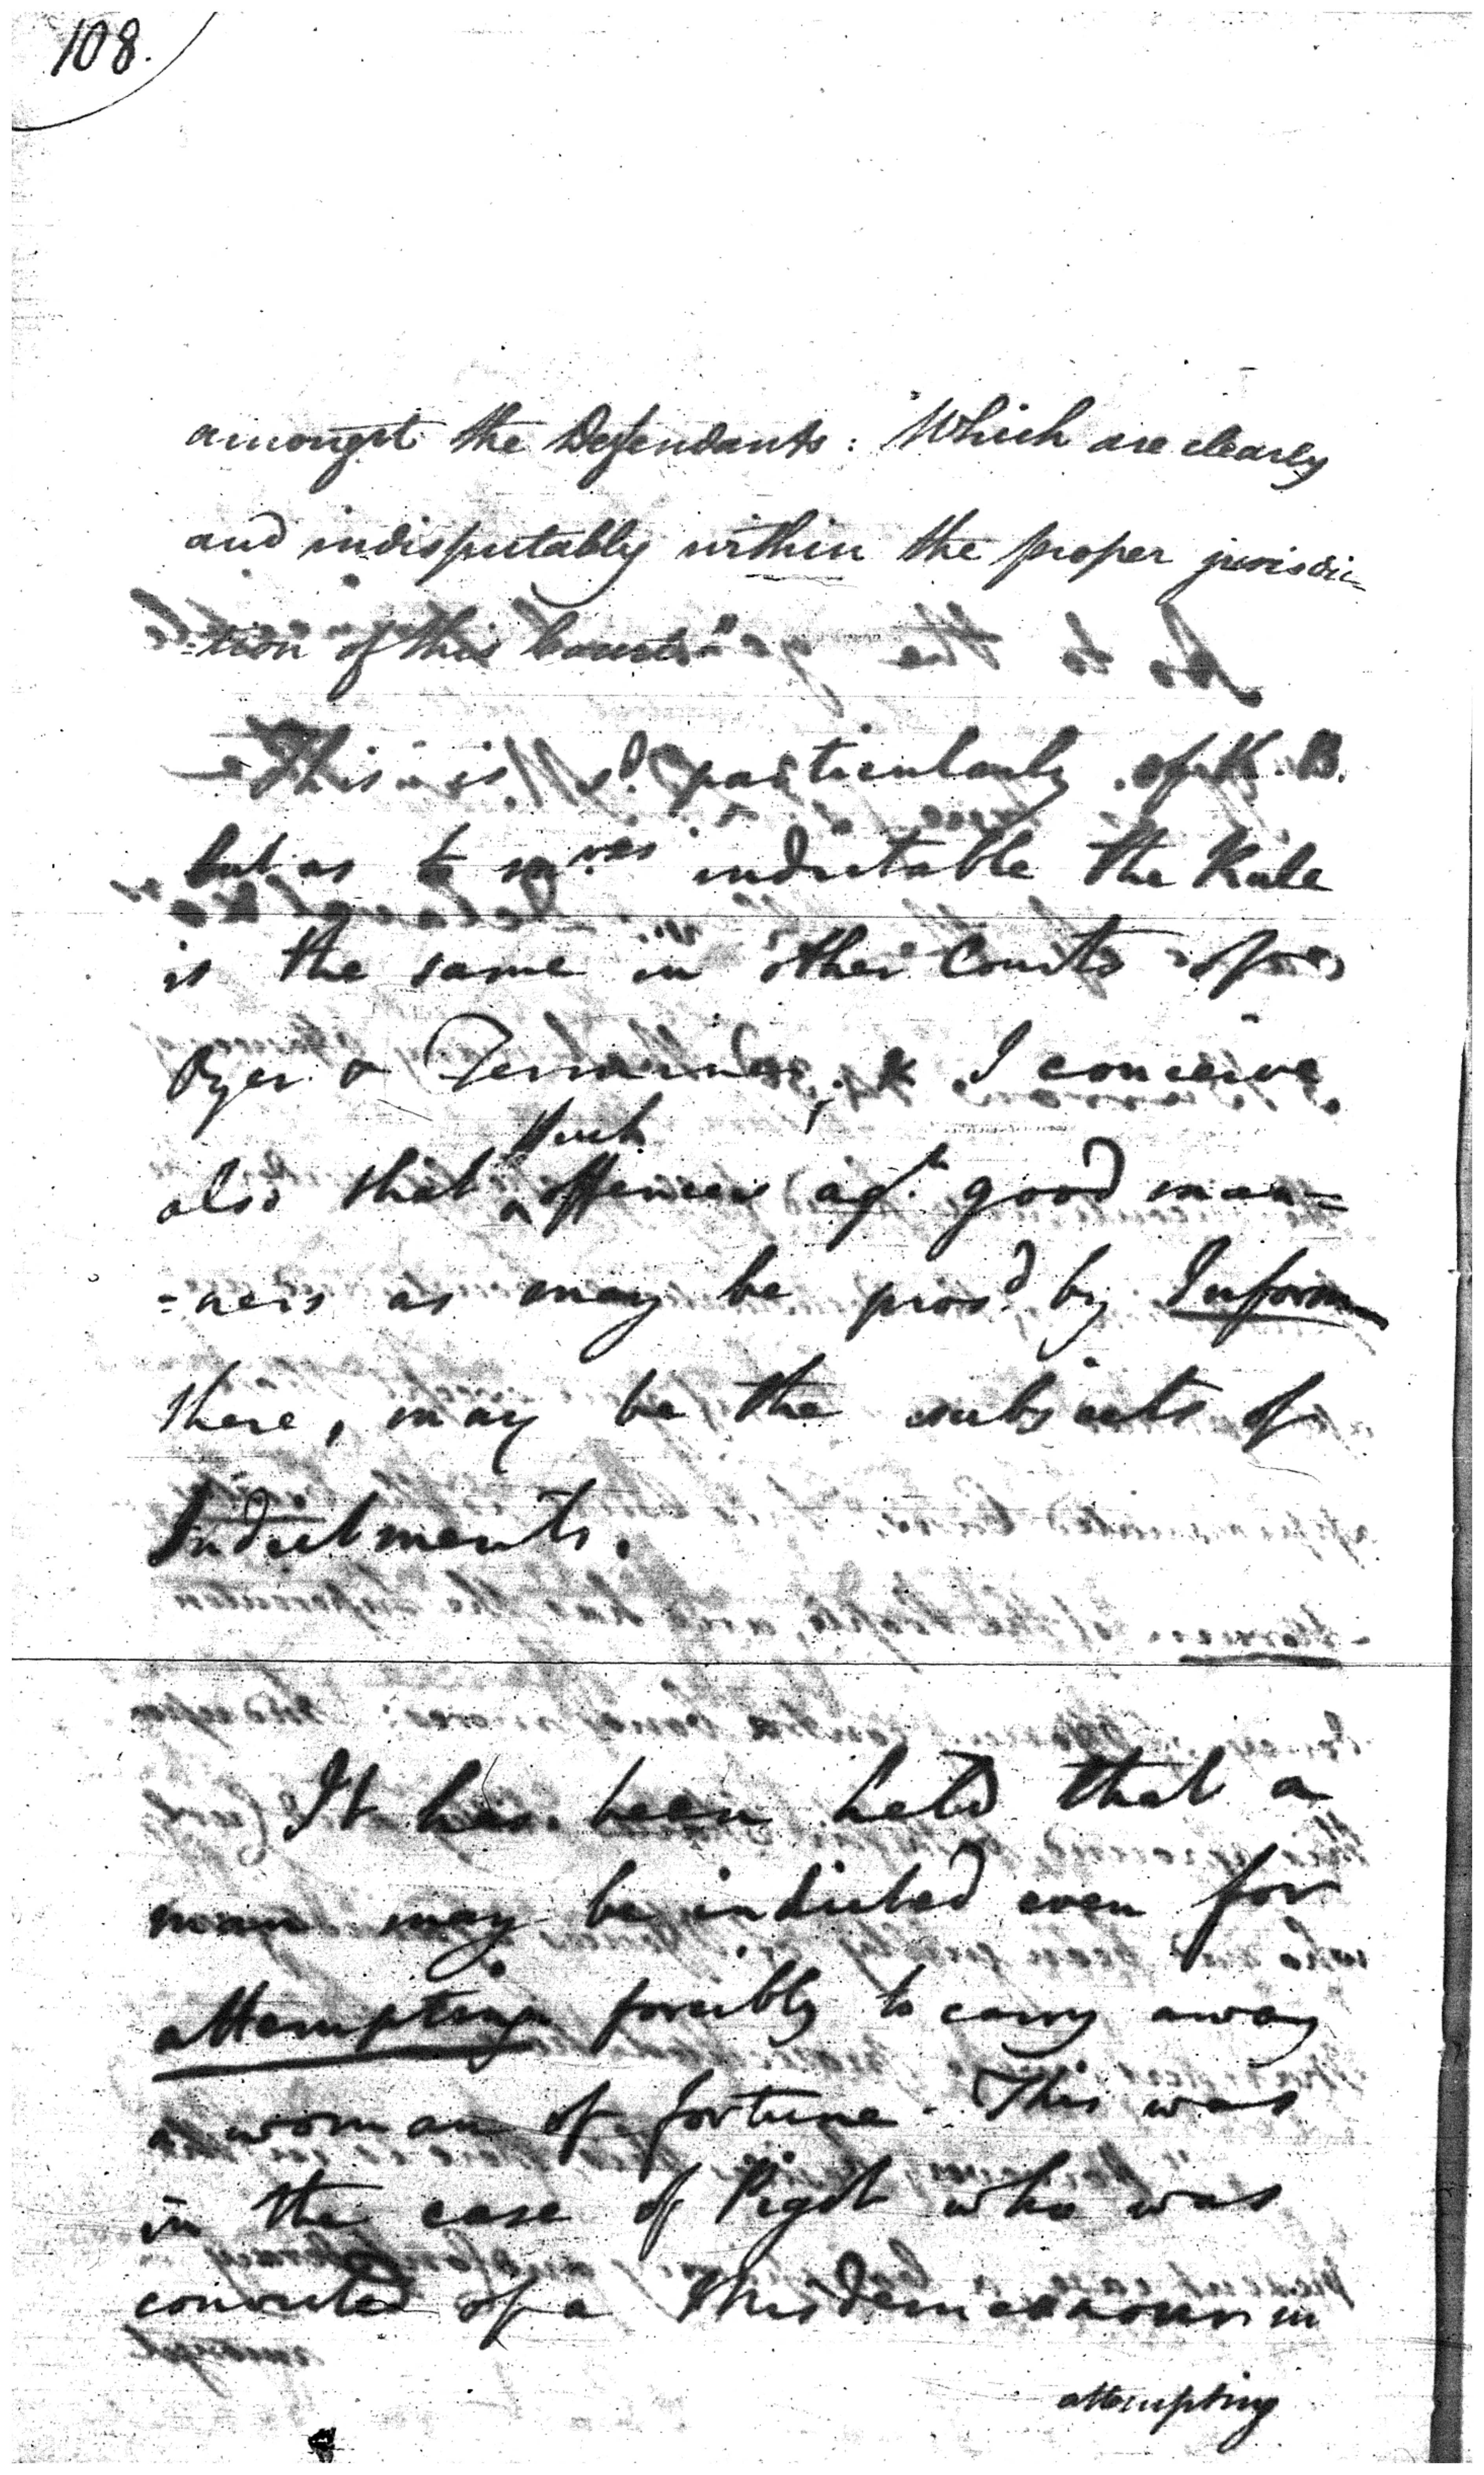 108.
amongst the Defendants: Which are clearly
and indisputably within the proper jurisdic=
=tion of this Court."
This is s.d particularly of K. B.
but as to m.res indictable the Rule
is the same in other Courts of
Oyer & Terminer; & I conceive
also that such offences ag.t good man=
=ners as may be pros.d by Inform
there, may be the subjects of
Indictments.
It has been held that a
man may be indicted even for
attempting forcibly to carry away
a woman of fortune. This was
in the case of Pigot who was
convicted of a Misdemeanour in
attempting